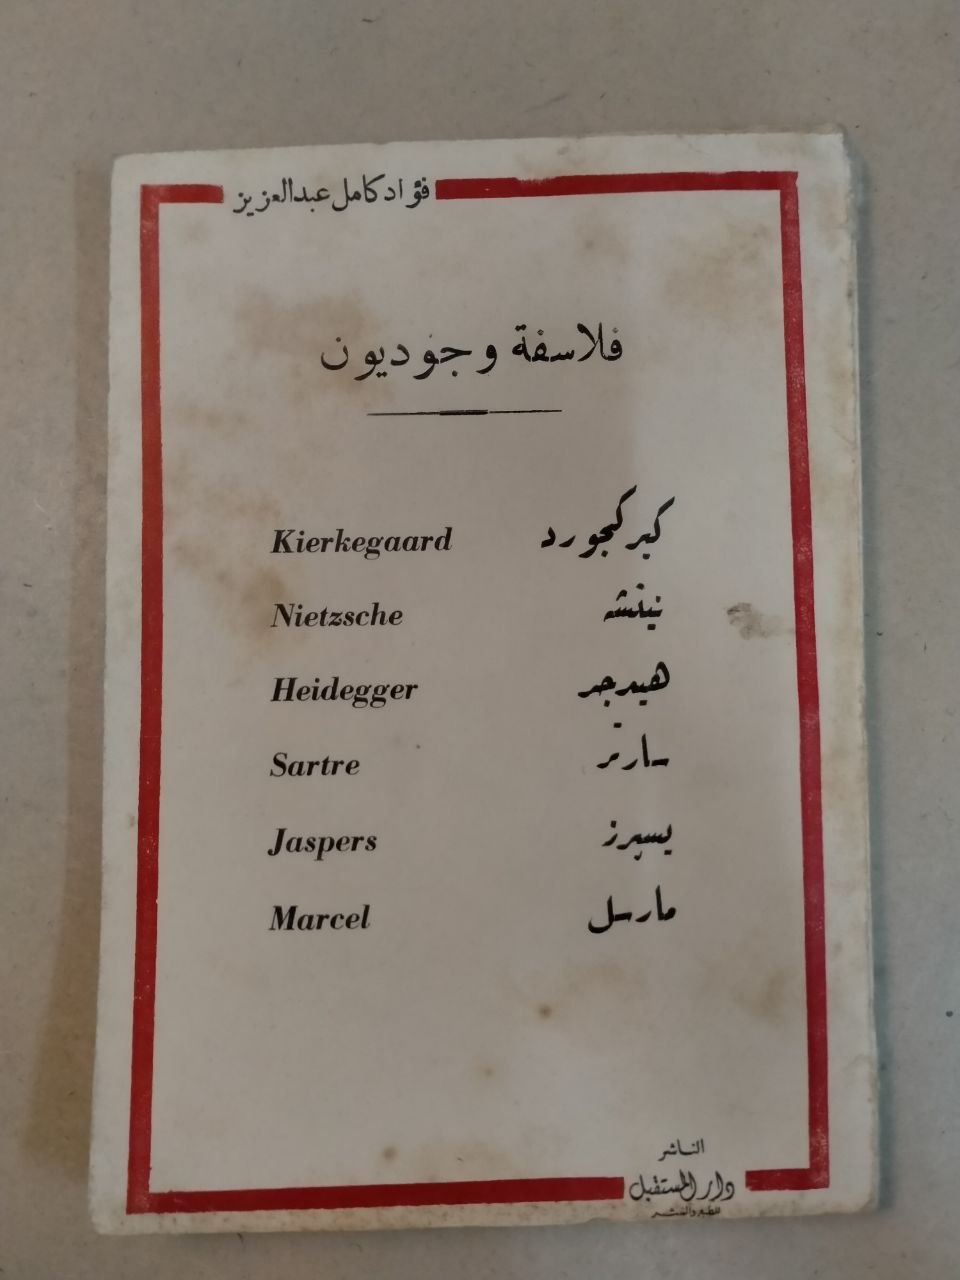 فؤاد كامل عبدالعزيز
فلاسفة وجوديون
Kierkegaard كيركجورد
Nietzsche نيتشه
Heidegger هيدجر
Sartre سارتر
Jaspers يسپرز
Marcel مارسل
الناشر
دار المستقبل
للطبع والنشر